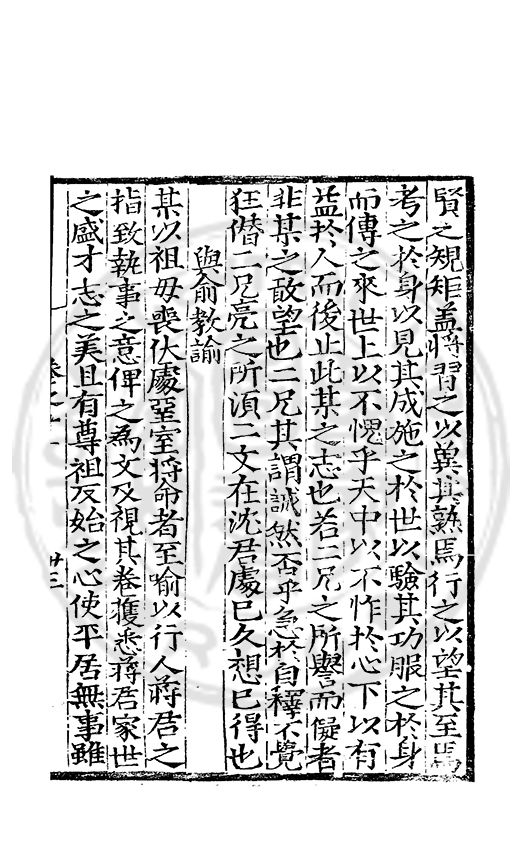 賢之規矩盖將習之以冀其熟焉行之以望其至焉
考之於身以見其成施之於世以驗其功服之於身
而傳之來世上以不愧乎天中以不怍於心下以有
益於人而後止此某之志也若二兄之所譽而儗者
非某之敢望也二兄其謂誠然否乎急於自釋不覺
狂僭二兄亮之所湏二文在沈君處已久想已得也
與俞教諭
某以祖毋喪伏處堊室將命者至喻以行人蔣君之
指致執事之意俾之為文及視其卷獲悉蔣君家世
之盛才志之美且有尊祖及始之心使平居無事雖
卷之
廿三